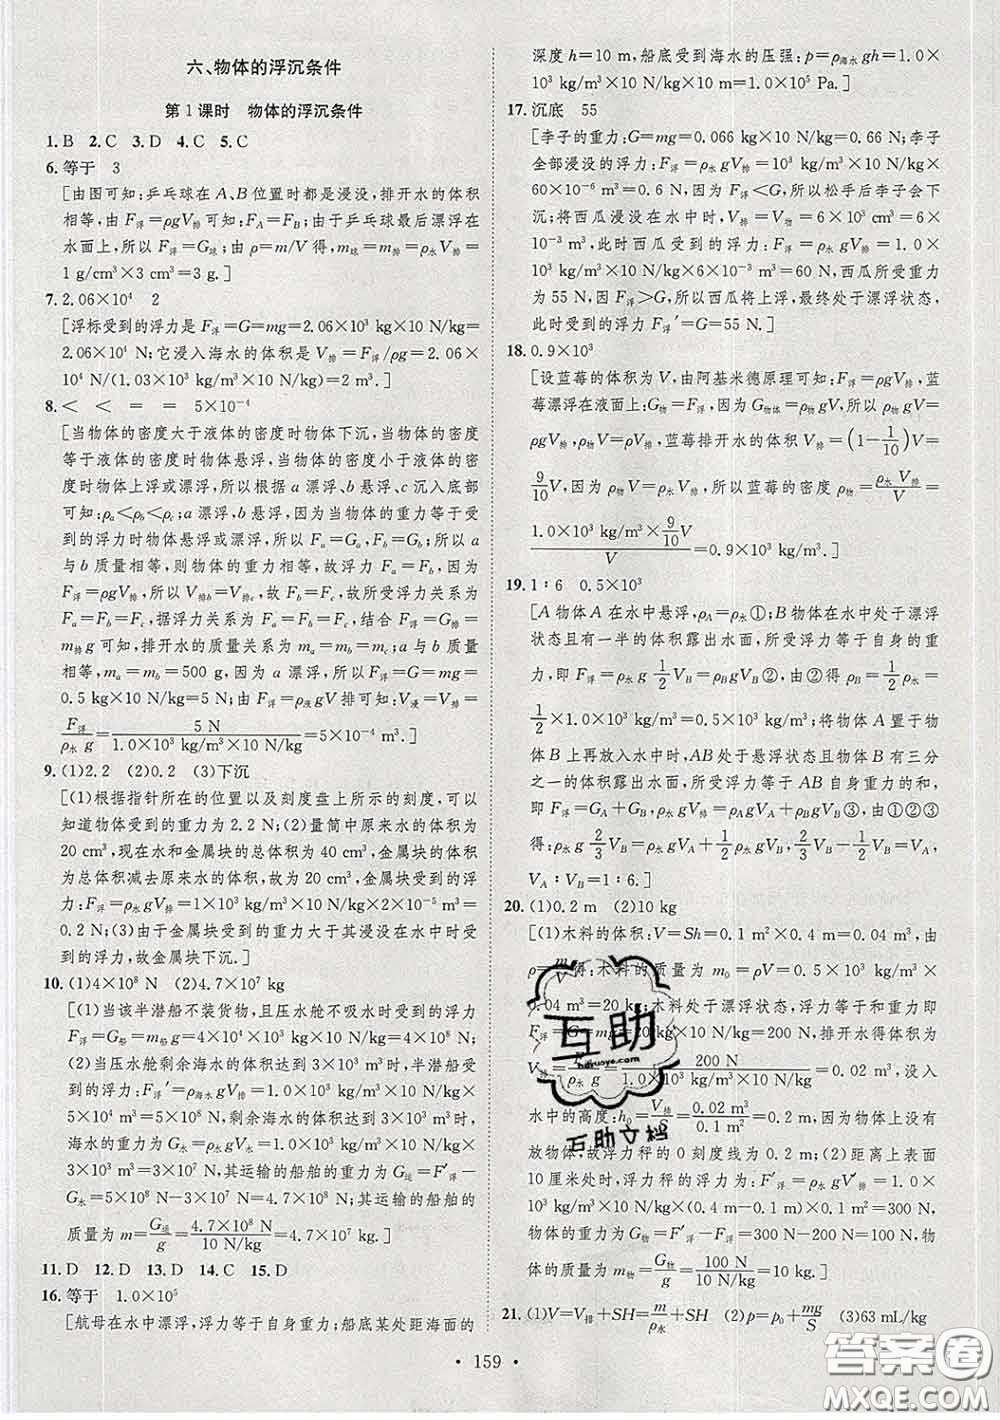 六、物体的浮沉条件
第1课时 物体的浮沉条件
1.B 2.C 3.D 4.C 5.C
6.等于 3
[由图可知:乒乓球在A、B位置时都是浸没,排开水的体积
相等,由F浮=ρgV排可知:FA=FB;由于乒乓球最后漂浮在
水面上,所以F浮=G球;由ρ=m/V得,m球=m排=ρ水V排=
1 g/cm³×3 cm³=3 g.]
7.2.06×10⁴ 2
[浮标受到的浮力是F浮=G=mg=2.06×10³ kg×10 N/kg=
2.06×10⁴ N;它浸入海水的体积是V排=F浮/ρg=2.06×
10⁴ N/(1.03×10³ kg/m³×10 N/kg)=2 m³.]
8.< < = = 5×10⁻⁴
[当物体的密度大于液体的密度时物体下沉,当物体的密度
等于液体的密度时物体悬浮,当物体的密度小于液体的密
度时物体上浮或漂浮,所以根据a漂浮、b悬浮、c沉入底部
可知:ρa<ρb<ρc;a漂浮,b悬浮,因为当物体的重力等于受
到的浮力时,物体悬浮或漂浮,所以Fa=Ga,Fb=Gb;由于a
与b质量相等,则物体的重力相等,故浮力Fa=Fb,因浮力
F浮=ρgV排,所以Fb=Fc,故浮力关系为Fa=Fb=Fc,结合F浮=G排=
m排g可知,排开水的质量关系为ma=mb=mc;a与b质量
相等,ma=mb=500 g,因为a漂浮,所以F浮=G=mg=
0.5 kg×10 N/kg=5 N;由F浮=ρ液gV排可知:V浸=V排=
F浮/ρ水g=5 N/(1.0×10³ kg/m³×10 N/kg)=5×10⁻⁴ m³.]
9.(1)2.2 (2)0.2 (3)下沉
[(1)根据指针所在的位置以及刻度盘上所示的刻度,可以
知道物体受到的重力为2.2 N;(2)量筒中原来水的体积为
20 cm³,现在水和金属块的总体积为40 cm³,金属块的体积为
总体积减去原来水的体积,故为20 cm³,金属块受到的浮
力:F浮=ρ水gV排=1.0×10³ kg/m³×10 N/kg×2×10⁻⁵ m³=
0.2 N;(3)由于金属块的重力大于其浸没在水中时受到的
浮力,故金属块下沉.]
10.(1)4×10⁸ N (2)4.7×10⁷ kg
[(1)当该半潜船不装货物,且压水舱中没有水时受到的浮力
F浮=G船=m船g=4×10⁴×10³ kg×10 N/kg=4×10⁸ N;
(2)当压水舱剩余海水的体积达到3×10³ m³时,半潜船受
到的浮力:F浮=ρ海水gV排=1.0×10³ kg/m³×10 N/kg×
5×10⁴ m³=5×10⁸ N,剩余海水的体积达到3×10³ m³时,
海水的重力为G水=ρ水gV水=1.0×10³ kg/m³×10 N/kg×
3×10³ m³=3×10⁷ N,其运输的船舶的重力为G运=F浮-
G水=5×10⁸ N-3×10⁷ N=4.7×10⁸ N,其运输的船舶的
质量为m=G运/g=4.7×10⁸ N/10 N/kg=4.7×10⁷ kg.]
11.D 12.D 13.D 14.C 15.D
16.等于 1.0×10⁵
[航母在水中漂浮,浮力等于自身重力;船底某处距海面的
深度h=10 m,船底受到海水的压强:p=ρ海水gh=1.0×
10³ kg/m³×10 N/kg×10 m=1.0×10⁵ Pa.]
17.沉底 55
[李子的重力:G=mg=0.066 kg×10 N/kg=0.66 N;李子
全部浸没的浮力:F浮=ρ水gV排=1.0×10³ kg/m³×10 N/kg×
60×10⁻⁶ m³=0.6 N;因为F浮<G,所以松手后李子会下
沉;将西瓜浸没在水中时,V排=V物=6×10³ cm³=6×
10⁻³ m³,此时西瓜受到的浮力:F浮=ρ水gV排=1.0×
10³ kg/m³×10 N/kg×6×10⁻³ m³=60 N,西瓜所受重力
为55 N,因F浮>G,所以西瓜将上浮,最终处于漂浮状态,
此时受到的浮力F浮′=G=55 N.]
18.0.9×10³
[设蓝莓的体积为V,由阿基米德原理可知:F浮=ρgV排,蓝
莓漂浮在液面上:G物=F浮,因为G物体=ρgV,所以ρgV=
ρgV排,即:ρV=ρV排,蓝莓排开水的体积V排=(1-1/10)V=
9/10V,因为ρV=ρ水V排,所以蓝莓的密度ρ物=ρ水V排/V=
1.0×10³ kg/m³×9/10V/V=0.9×10³ kg/m³.]
19.1∶6 0.5×10³
[A物体A在水中悬浮,ρA=ρ水①;B物体在水中处于漂浮
状态且有一半的体积露出水面,所受浮力等于自身的重
力,即F浮=ρ水g1/2VB=ρBgVB②,由②得ρB=1/2ρ水=
1/2×1.0×10³ kg/m³=0.5×10³ kg/m³;将物体A置于物
体B上再放入水中时,AB处于悬浮状态且物体B有三分
之一的体积露出水面,所受浮力等于AB自身重力的和,
即F浮=GA+GB,ρ水g2/3VB=ρAgVA+ρBgVB③,由①②③
得:ρ水g2/3VB=ρ水gVA+1/2ρ水gVB,VA=2/3VB-1/2VB,
VA∶VB=1∶6.]
20.(1)0.2 m (2)10 kg
[(1)木料的体积:V=Sh=0.1 m²×0.4 m=0.04 m³,由ρ
=m/V得:木料的质量为m0=ρV=0.5×10³ kg/m³×
0.04 m³=20 kg;木料处于漂浮状态,浮力等于和重力即
F浮=G=mg=20 kg×10 N/kg=200 N,排开水得体积为
V排=F浮/ρ水g=200 N/1.0×10³ kg/m³×10 N/kg=0.02 m³,没入
水中的高度:h0=V排/S=0.02 m³/0.1 m²=0.2 m,因为物体上没有
放物体,故浮力秤的0刻度线为0.2 m;(2)距离上表面
10厘米处时,浮力秤的浮力为:F′浮=ρ水gV′排=1.0×
10³ kg/m³×10 N/kg×0.1 m²×(0.4 m-0.1 m)=300 N,
物体的重力为:G物=F′浮-F浮=300 N-200 N=100 N,物
体的质量为m物=G物/g=100 N/10 N/kg=10 kg.]
21.(1)V=V排+SH=m/ρ水+SH (2)p=p0+mg/S (3)63 mL/kg
· 159 ·
互助
hdzuoye.com
互助文档
答案圈
MXQE.COM